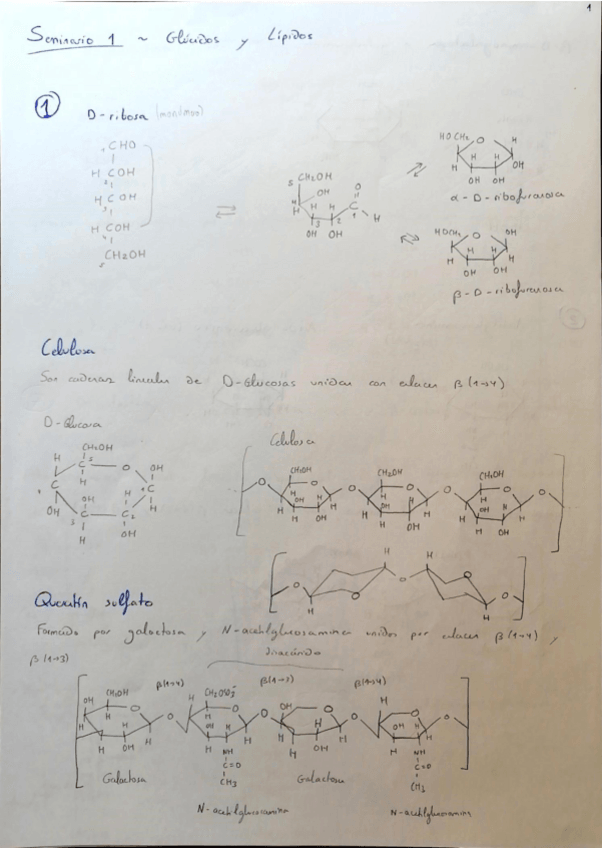 1
Seminario 1 ~ Glúcidos y Lípidos
1 D-ribosa (monómero)
1 CHO
H COH
2
H COH
3
H COH
5 CH2OH
⇌
5 CH2OH
OH
O
H H H
4 3 2 1 H
OH OH
HOCH2 O H
H H H OH
OH OH
α-D-ribofuranosa
HOCH2 O OH
H H H
OH OH
β-D-ribofuranosa
Celulosa
Son cadenas lineales de D-Glucosas unidas con enlaces β(1→4)
D-Glucosa
CH2OH
H C 5 O OH
4 C H C
OH OH H H
3 C C 2
H OH
Celulosa
CH2OH CH2OH CH2OH
O O O O O O O
OH OH OH
H OH H OH H OH
H H
O O O O O
H H
Queratín sulfato
Formado por galactosa y N-acetilglucosamina unidos por enlaces β(1→4) y
β(1→3)
disacárido
β(1→4) β(1→3) β(1→4)
OH CH2OH CH2OSO3- OH
O O O O O O O O
H OH H NH H OH H NH
C=O C=O
CH3 CH3
Galactosa Galactosa
N-acetilglucosamina N-acetilglucosamina